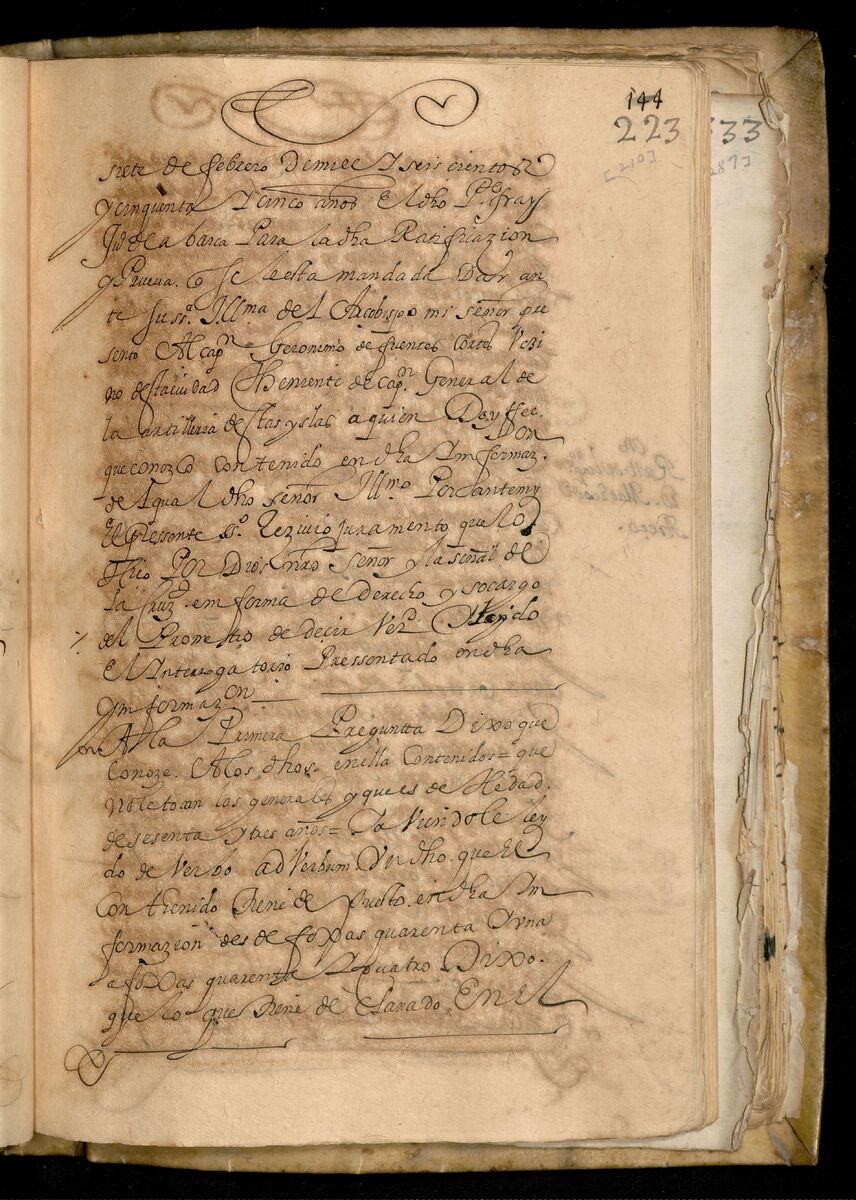 144
223
33
[210]
287]
siete de febrero De mill Y seis cientos
y cinquenta Y cinco años El dho Pe. fray
Jud de la barca Para la dha Ratificazion
y Prueva. q Se le esta mandada Dar an
te Su sa. Illma del Arcobispo mi señor pre
sento Al capn. Geronimo de fuentes Cortes Vezi
no desta ciudad Theniente de capn. General de
la artilleria de stas yslas a quien Doy ffee.
que conozco contenido en dha Ynformaz.on
de el qual dho señor Illmo. Por Ante my
El Pressente So. Rezivio juramento que lo
Hiço Por Dios nro Señor y la señal de
la Cruz en forma de derecho y so cargo
del Prometio de decir Verd. Y leydo
El Ynterrogatorio Pressentado en dha
Ynformazon
A la Primera Preguntta Dixo que
Conoze. A los dhos. en ella Contenidos = que
No le tocan las generales y que es de Hedad.
de sesenta y tres años =
do de Verbo ad Verbum Un dho. que El
Contthenido tiene de Puesto. en dha Yn
formazion desde foxas quarenta Y una
a foxas quarenta Y quatro Dixo.
que lo que tiene de Clarado En el